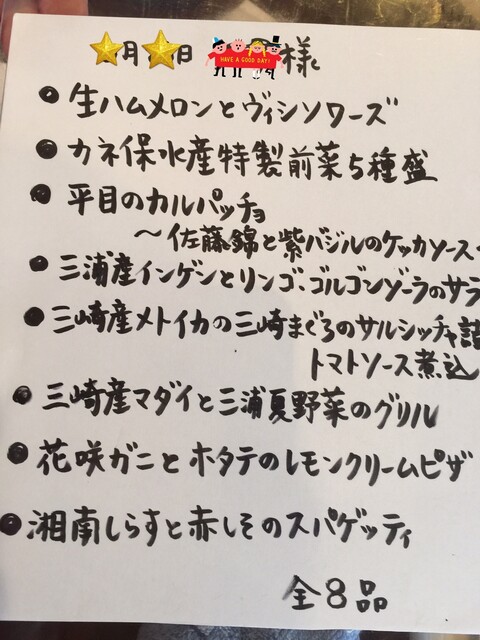 月 日 様
HAVE A GOOD DAY!
● 生ハムメロンとヴィシソワーズ
● カネ保水産特製前菜5種盛
● 平目のカルパッチョ
〜佐藤錦と紫バジルのケッカソース
● 三浦産インゲンとリンゴ、ゴルゴンゾーラのサラ
● 三崎産メトイカの三崎まぐろのサルシッチャ詰
トマトソース煮込
● 三崎産マダイと三浦夏野菜のグリル
● 花咲ガニとホタテのレモンクリームピザ
● 湘南しらすと赤しそのスパゲッティ
全8品